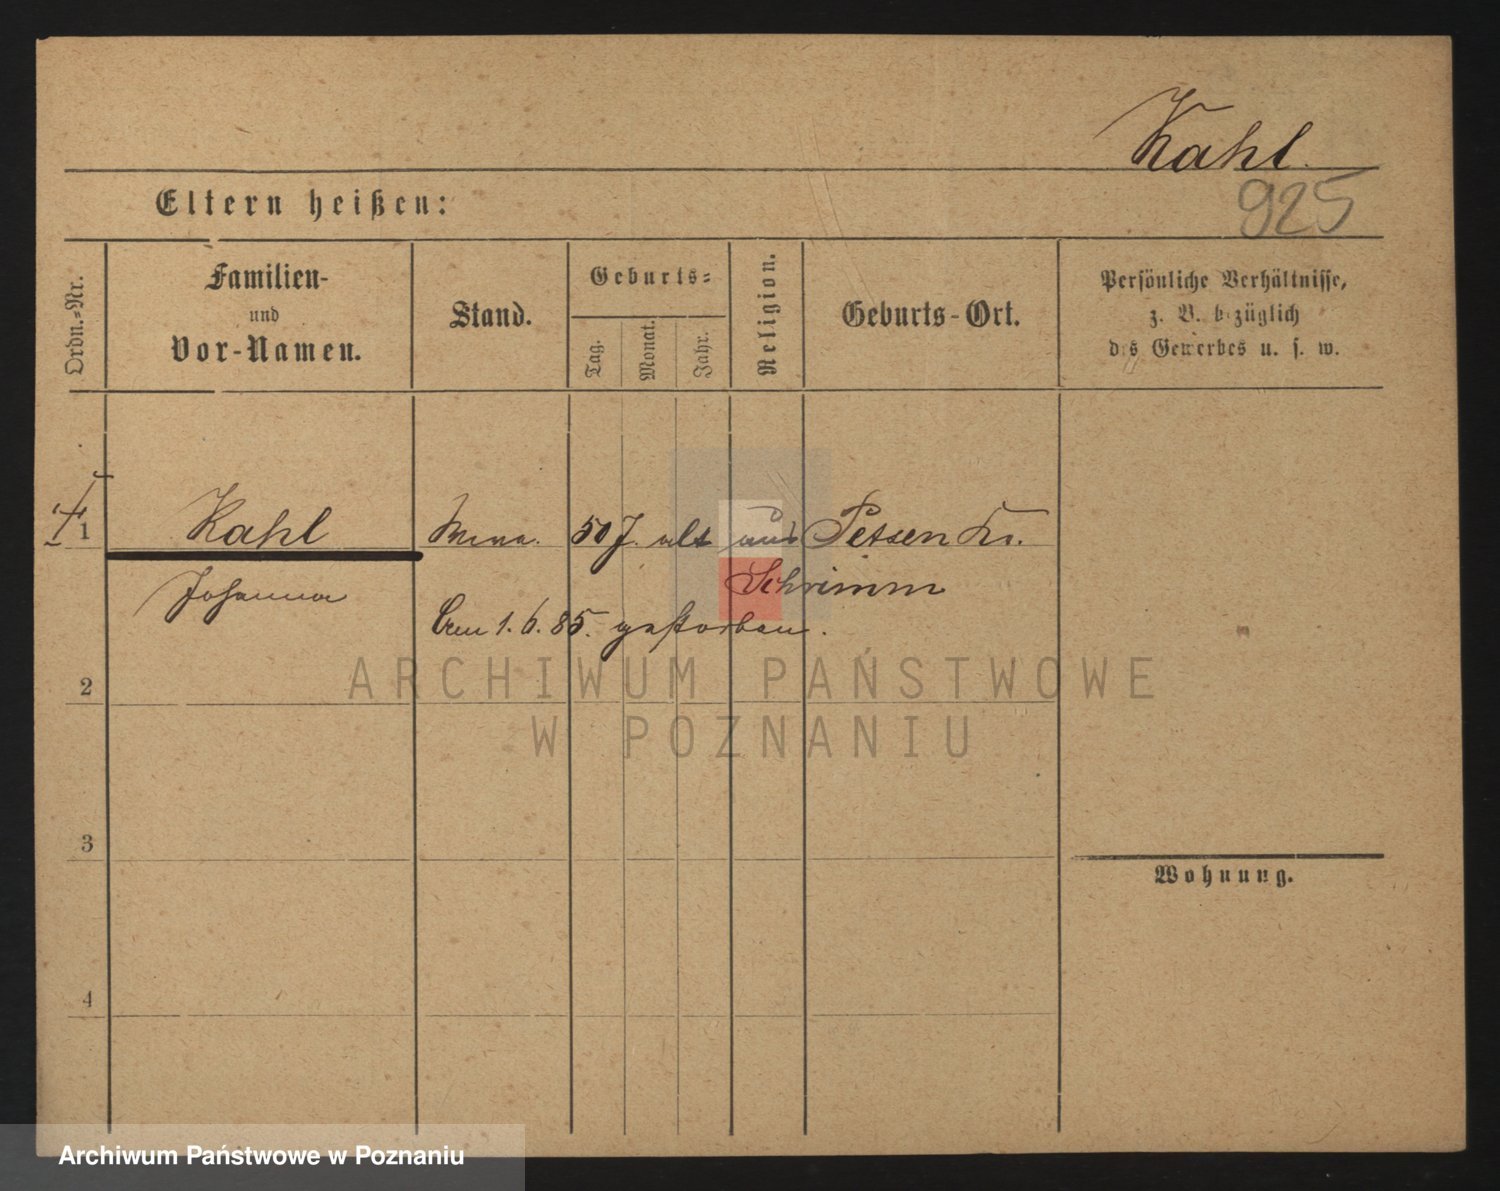 Kahl.
925
Eltern heißen:
Ordn.-Nr.
Familien-
und
Vor-Namen.
Stand.
Geburts-
Tag.
Monat.
Jahr.
Religion.
Geburts-Ort.
Persönliche Verhältnisse,
z. B. bezüglich
des Gewerbes u. s. w.
1 Kahl 50 J. alt aus Petsen Kr.
Schrimm
Johanna
Am 1.6.85. gestorben.
2
3
4
Wohnung.
ARCHIWUM PAŃSTWOWE
W POZNANIU
Archiwum Państwowe w Poznaniu